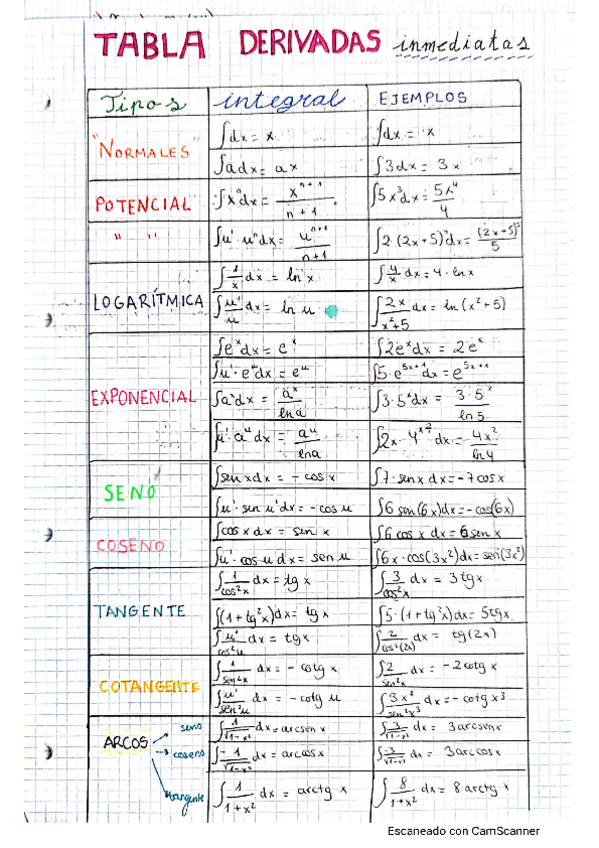 TABLA DERIVADAS inmediatas
Tipos integral EJEMPLOS
"NORMALES" ∫dx = x ∫dx = x
∫adx = ax ∫3dx = 3x
POTENCIAL ∫xⁿdx = xⁿ⁺¹/n+1 ∫5x³dx = 5x⁴/4
" " ∫u'·uⁿdx = uⁿ⁺¹/n+1 ∫2(2x+5)⁴dx = (2x+5)⁵/5
LOGARÍTMICA ∫1/x dx = ln x ∫4/x dx = 4·ln x
∫u'/u dx = ln u ∫2x/x²+5 dx = ln(x²+5)
EXPONENCIAL ∫eˣdx = eˣ ∫2eˣdx = 2eˣ
∫u'·eᵘdx = eᵘ ∫5·e⁵ˣ⁺¹dx = e⁵ˣ⁺¹
∫aˣdx = aˣ/lna ∫3·5ˣdx = 3·5ˣ/ln5
∫u'·aᵘdx = aᵘ/lna ∫2x·4ˣ²dx = 4ˣ²/ln4
SENO ∫senxdx = -cosx ∫7·senx dx = -7cosx
∫u'·sen u'dx = -cos u ∫6 sen(6x)dx = -cos(6x)
COSENO ∫cos x dx = sen x ∫6 cos x dx = 6sen x
∫u'·cos u dx = sen u ∫6x·cos(3x²)dx = sen(3x²)
TANGENTE ∫1/cos²x dx = tg x ∫3/cos²x dx = 3tgx
∫(1+tg²x)dx = tg x ∫5·(1+tg²x)dx = 5tgx
∫u'/cos²u dx = tgx ∫2/cos²(2x) dx = tg(2x)
COTANGENTE ∫1/sen²x dx = -cotg x ∫2/sen²x dx = -2cotg x
∫u'/sen²u dx = -cotg u ∫3x²/sen²x³ dx = -cotg x³
ARCOS seno ∫1/√1-x² dx = arcsenx ∫3/√1-x² dx = 3arcsenx
coseno ∫-1/√1-x² dx = arccosx ∫-3/√1-x² dx = 3arccosx
tangente ∫1/1+x² dx = arctg x ∫8/1+x² dx = 8arctg x
Escaneado con CamScanner